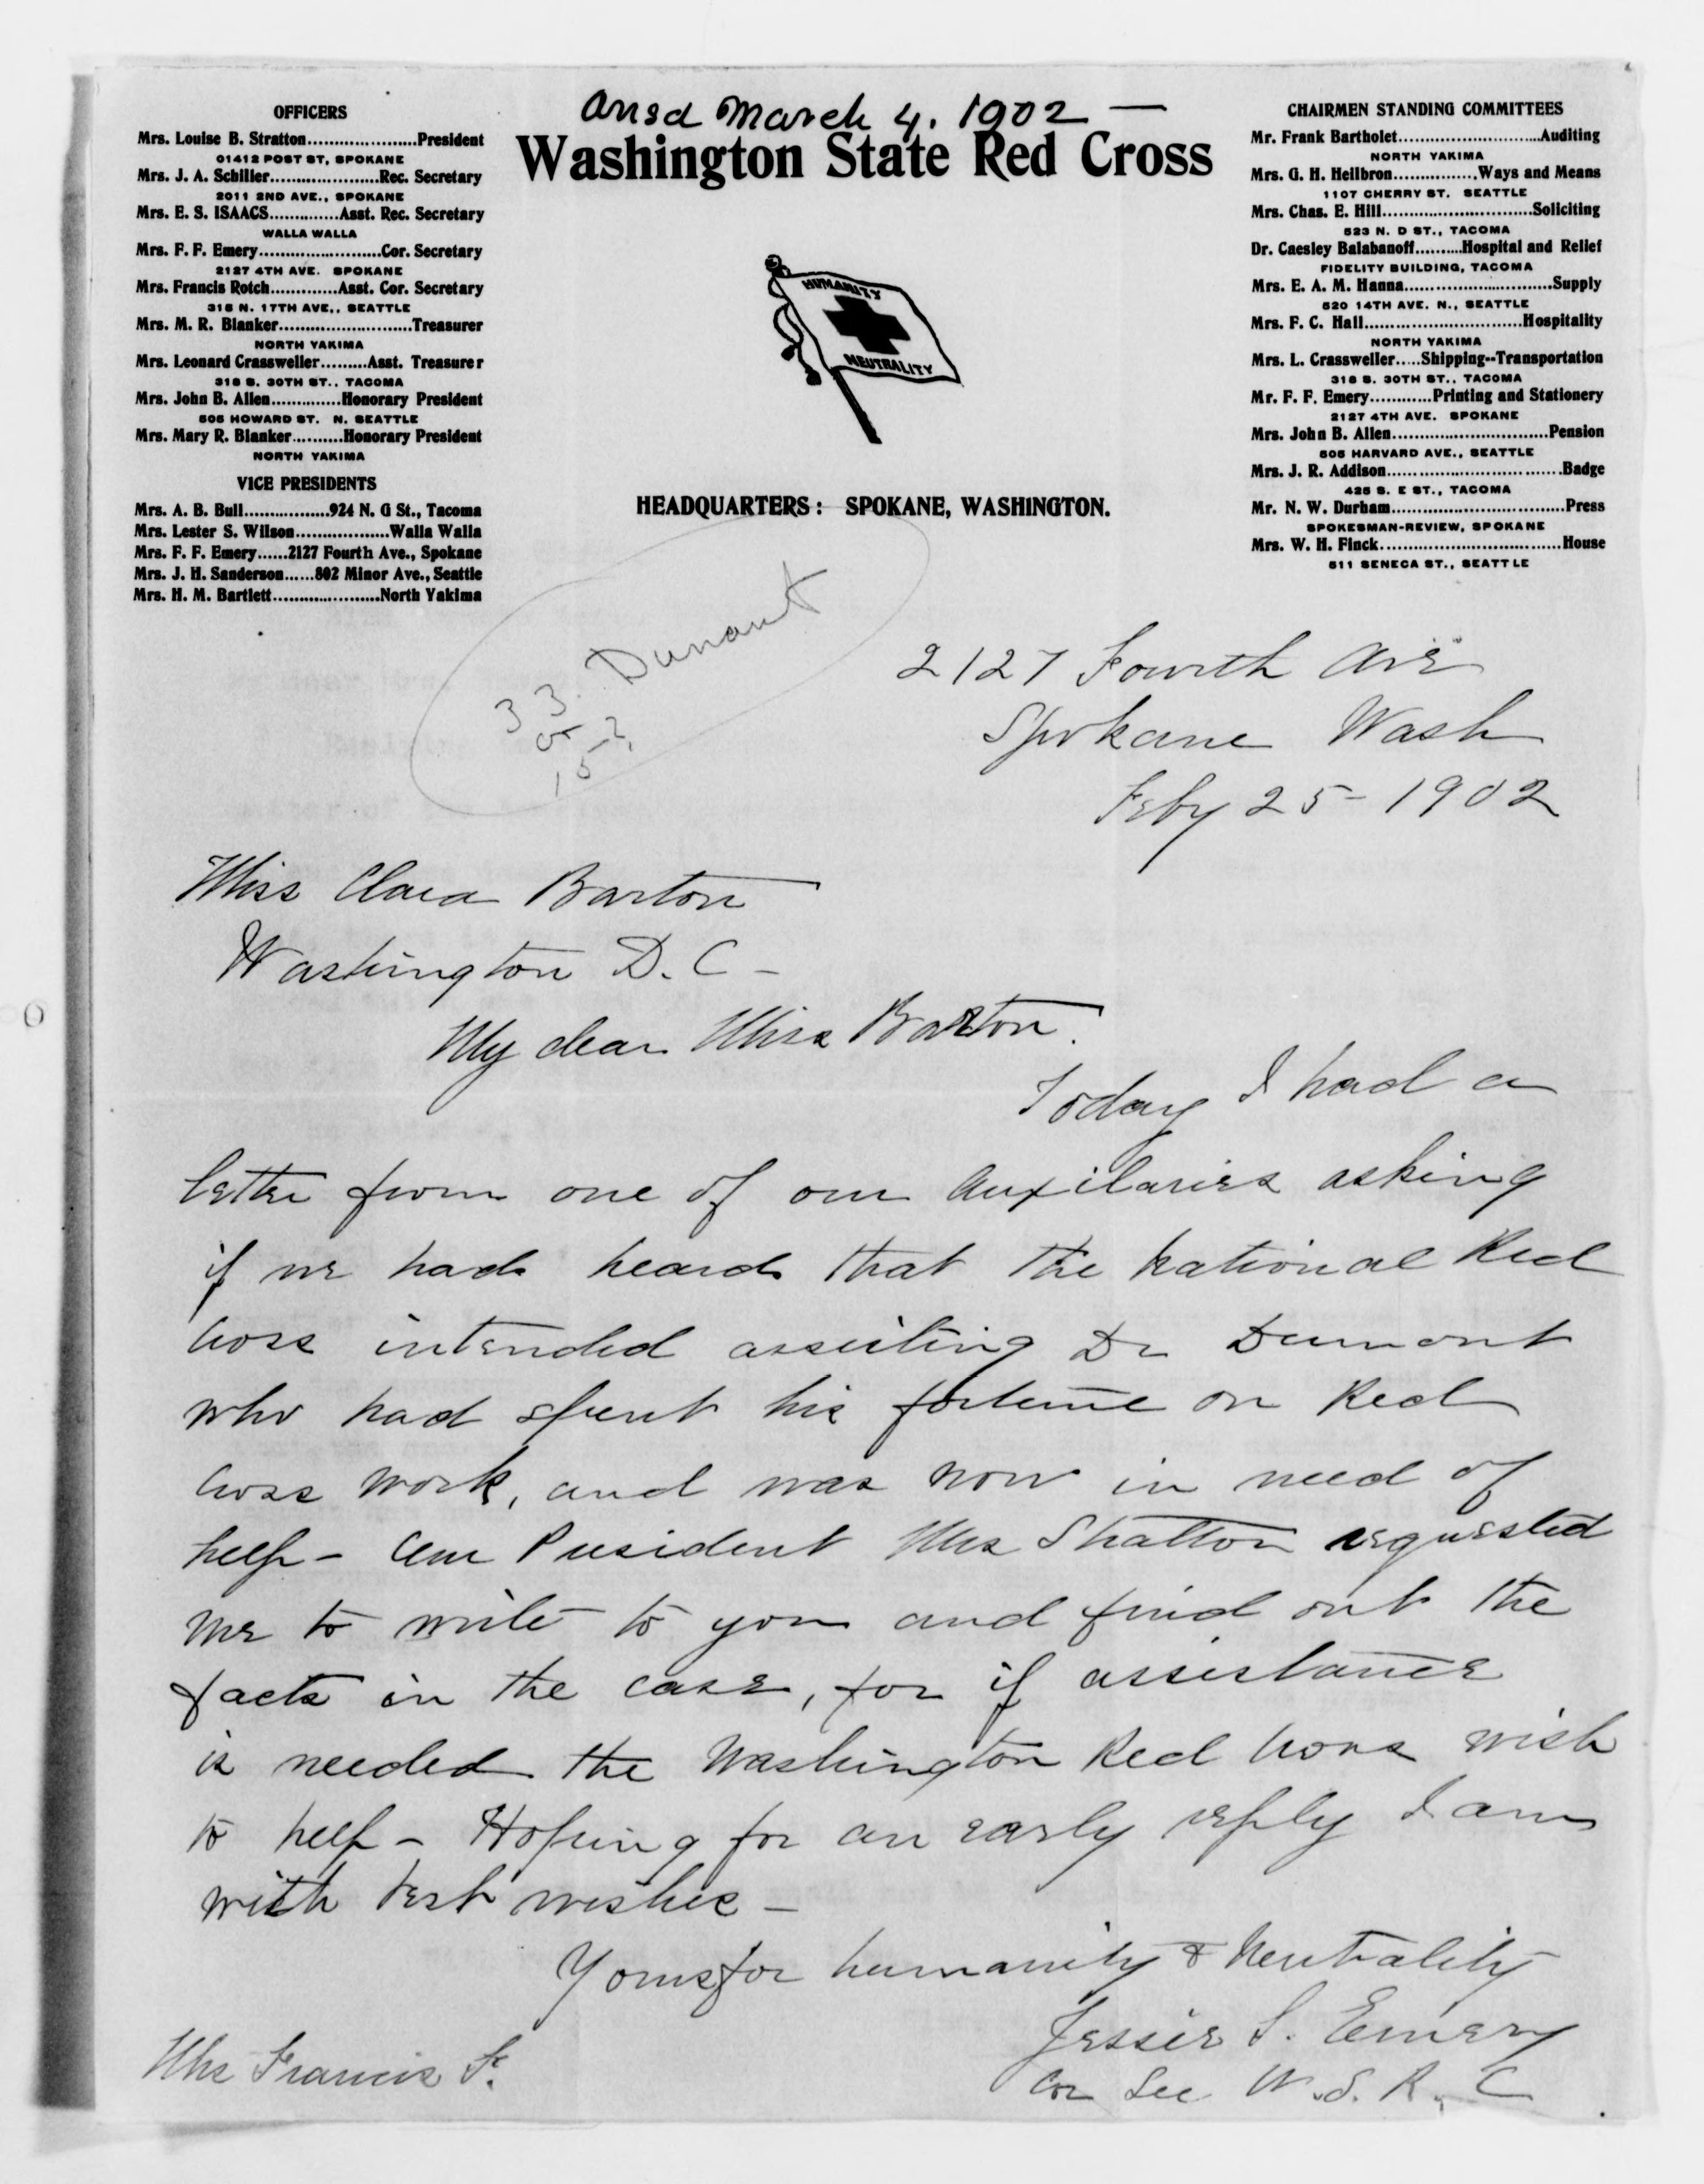 Ansd March 4. 1902 —
Washington State Red Cross
OFFICERS
Mrs. Louise B. Stratton....................President
01412 POST ST, SPOKANE
Mrs. J. A. Schiller....................Rec. Secretary
2011 2ND AVE., SPOKANE
Mrs. E. S. ISAACS.............Asst. Rec. Secretary
WALLA WALLA
Mrs. F. F. Emery.......................Cor. Secretary
2127 4TH AVE. SPOKANE
Mrs. Francis Rotch............Asst. Cor. Secretary
315 N. 17TH AVE., SEATTLE
Mrs. M. R. Blanker.........................Treasurer
NORTH YAKIMA
Mrs. Leonard Crassweller.........Asst. Treasurer
318 S. 30TH ST., TACOMA
Mrs. John B. Allen.............Honorary President
505 HOWARD ST. N. SEATTLE
Mrs. Mary R. Blanker..........Honorary President
NORTH YAKIMA
VICE PRESIDENTS
Mrs. A. B. Bull................924 N. G St., Tacoma
Mrs. Lester S. Wilson..................Walla Walla
Mrs. F. F. Emery......2127 Fourth Ave., Spokane
Mrs. J. H. Sanderson......802 Minor Ave., Seattle
Mrs. H. M. Bartlett....................North Yakima
HUMANITY
NEUTRALITY
HEADQUARTERS: SPOKANE, WASHINGTON.
CHAIRMEN STANDING COMMITTEES
Mr. Frank Bartholet..........................Auditing
NORTH YAKIMA
Mrs. G. H. Heilbron...............Ways and Means
1107 CHERRY ST. SEATTLE
Mrs. Chas. E. Hill............................Soliciting
523 N. D ST., TACOMA
Dr. Caesley Balabanoff.........Hospital and Relief
FIDELITY BUILDING, TACOMA
Mrs. E. A. M. Hanna...........................Supply
520 14TH AVE. N., SEATTLE
Mrs. F. C. Hall.............................Hospitality
NORTH YAKIMA
Mrs. L. Crassweller.....Shipping--Transportation
318 S. 30TH ST., TACOMA
Mr. F. F. Emery............Printing and Stationery
2127 4TH AVE. SPOKANE
Mrs. John B. Allen.............................Pension
505 HARVARD AVE., SEATTLE
Mrs. J. R. Addison................................Badge
425 S. E ST., TACOMA
Mr. N. W. Durham................................Press
SPOKESMAN-REVIEW, SPOKANE
Mrs. W. H. Finck.................................House
511 SENECA ST., SEATTLE
33. Dunant
or
15-?
2127 Fourth Ave
Spokane Wash
Feby 25 - 1902
Miss Clara Barton
Washington D. C -
My dear Miss Barton.
Today I had a
letter from one of our Auxilaries asking
if we had heard that the National Red
Cross intended assisting Dr Dumont
who had spent his fortune on Red
Cross work, and was now in need of
help - Our President Mrs Stratton requested
me to write to you and find out the
facts in the case, for if assistance
is needed the Washington Red Cross wish
to help - Hoping for an early reply I am
with best wishes -
Yours for humanity & Neutrality
Jessie S. Emery
Cor Sec W. S. R. C
Mrs Francis F.